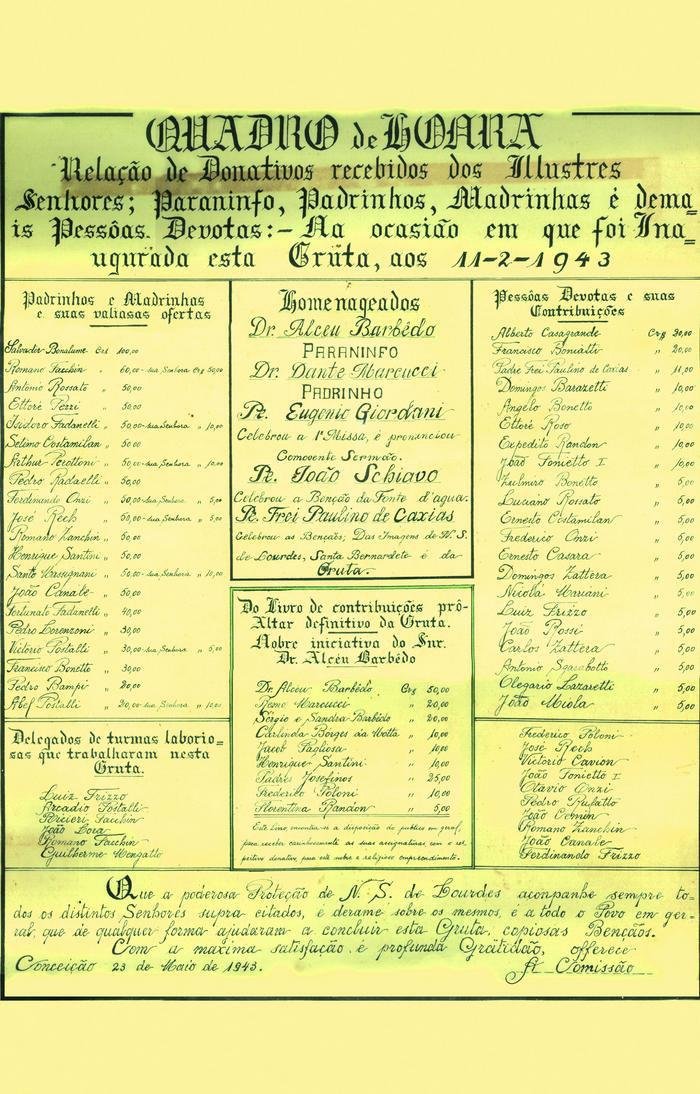 QUADRO de HONRA
Relação de Donativos recebidos dos Illustres
Senhores; Paraninfo, Padrinhos, Madrinhas é dema=
is Pessôas. Devotas:- Na ocasião em que foi Ina=
ugurada esta Gruta, aos 11-2-1943
Padrinhos e Madrinhas
e suas valiasas ofertas
Salvador Bonalume Cr$ 100,00
Romano Facchin „ 60,00 - sua Senhora Cr$ 50,00
Antônio Rossato „ 50,00
Ettore Pezzi „ 50,00
Isidoro Fadanelli „ 50,00 - sua Senhora „ 10,00
Setimo Costamilan „ 50,00
Arthur Perottoni „ 50,00 - sua Senhora „ 10,00
Pedro Radaelli „ 50,00
Ferdinando Onzi „ 50,00 - sua Senhora „ 5,00
José Rech „ 50,00 - sua Senhora „ 5,00
Romano Zanchin „ 50,00
Henrique Santini „ 50,00
Santo „ 50,00 - sua Senhora „ 10,00
João Canale „ 50,00
Fortunato Fadanelli „ 40,00
Pedro Lorenzoni „ 30,00
Victório Postalli „ 30,00 - sua Senhora „ 5,00
Francisco Bonetto „ 30,00
Pedro Bampi „ 20,00
Abel Postalli „ 20,00 - sua Senhora „ 10,00
Delegados de turmas laborio=
sas que trabalharam nesta
Gruta.
Luiz Frizzo
Arcadio Postalli
Percieri Facchin
João Lora
Romano Facchin
Guilherme Mengatto
Homenageados
Dr. Alceu Barbêdo
PARANINFO
Dr. Dante Marcucci
PADRINHO
Pe. Eugenio Giordani
Celebrou a 1ª Missa, é pronunciou
Comovente Sermão.
Pe. João Schiavo
Celebrou a Benção da Fonte d'agua.
Pe. Frei Paulino de Caxias
Celebrou as Bençãos; Das Imagens de N. S.
de Lourdes, Santa Bernardete é da
Gruta.
Do Livro de contribuições pró-
Altar definitivo da Gruta.
Nobre iniciativa do Snr.
Dr. Alcêu Barbêdo
Dr. Alceu Barbêdo Cr$ 50,00
Remo Marcucci „ 20,00
Sergio e Sandra Barbêdo „ 20,00
Carlinda Borges da Motta „ 10,00
Jacob Pagliosa „ 10,00
Henrique Santini „ 10,00
Padres Josefinos „ 25,00
Frederico Poloni „ 10,00
Florentina Randon „ 5,00
Este Livro encontra-se a disposição do publico em geral,
para receber carinhosamente as suas assignaturas com o res=
peitivo donativo, para este nobre e religioso empreendimento.
Pessôas Devotas e suas
Contribuições
Alberto Casagrande Cr$ 30,00
Francisco Boniatti „ 20,00
Padre Frei Paulino de Caxias „ 11,00
Domingos Barazetti „ 10,00
Angelo Bonetto „ 10,00
Ettore Roso „ 10,00
Expedito Randon „ 10,00
João Tonietto I. „ 10,00
Zulmiro Bonetto „ 5,00
Luciano Rossato „ 5,00
Ernesto Costamilan „ 5,00
Frederico Onzi „ 5,00
Ernesto Casara „ 5,00
Domingos Zattera „ 5,00
Nicolá Mariani „ 5,00
Luiz Frizzo „ 5,00
João Rossi „ 5,00
Carlos Zattera „ 5,00
Antonio Sgarabotto „ 5,00
Olegario Lazaretti „ 5,00
João Miola „ 5,00
Frederico Poloni
José Rech
Victorio Cavion
João Tonietto I.
Otavio Onzi
Pedro Rufatto
João Comin
Romano Zanchin
João Canale
Ferdinando Frizzo
Que a poderosa Proteção de N. S. de Lourdes acompanhe sempre to=
dos os distintos Senhores supra citados, é derame sobre os mesmos, é a todo o Povo em ger=
ral, que de qualquer forma ajudaram a concluir esta Gruta, copiosas Bençãos.
Com a maxima satisfação, é profunda Gratidão, offerece
Conceição 23 de Maio de 1943. A Comissão